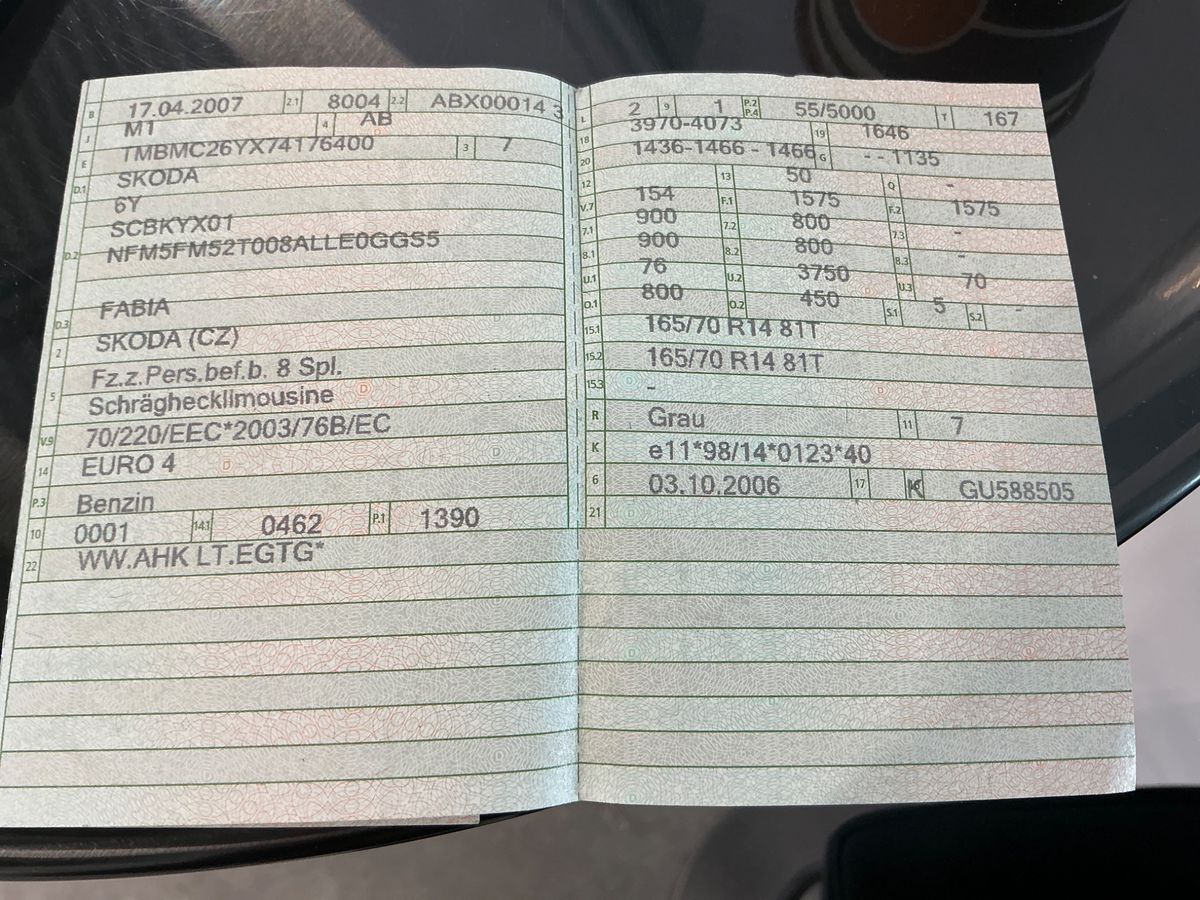 B 17.04.2007 2.1 8004 2.2 ABX00014 3
J M1 4 AB
E TMBMC26YX74176400 3 7
D.1 SKODA
6Y
SCBKYX01
D.2 NFM5FM52T008ALLE0GGS5
D.3 FABIA
2 SKODA (CZ)
Fz.z.Pers.bef.b. 8 Spl.
5 Schräghecklimousine
V.9 70/220/EEC*2003/76B/EC
14 EURO 4
P.3 Benzin
10 0001 14.1 0462 P.1 1390
22 WW.AHK LT.EGTG*
L 2 9 1 P.2 P.4 55/5000 T 167
18 3970-4073 19 1646
20 1436-1466 - 1466 G - - 1135
12 13 50 Q -
V.7 154 F.1 1575 F.2 1575
7.1 900 7.2 800 7.3 -
8.1 900 8.2 800 8.3 -
U.1 76 U.2 3750 U.3 70
O.1 800 O.2 450 S.1 5 S.2 -
15.1 165/70 R14 81T
15.2 165/70 R14 81T
15.3 -
R Grau 11 7
K e11*98/14*0123*40
6 03.10.2006 17 K GU588505
21